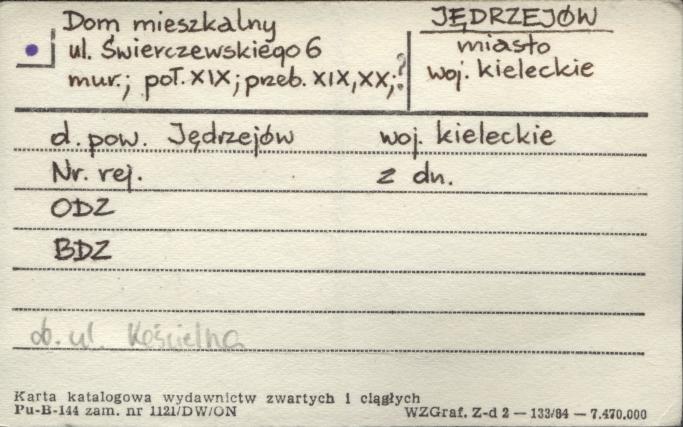 Dom mieszkalny
ul. Świerczewskiego 6
mur.; poł. XIX; przeb. XIX, XX; ?
JĘDRZEJÓW
miasto
woj. kieleckie
d. pow. Jędrzejów woj. kieleckie
Nr. rej. z dn.
ODZ
BDZ
ob. ul. Kościelna
Karta katalogowa wydawnictw zwartych i ciągłych
Pu-B-144 zam. nr 1121/DW/ON WZGraf. Z-d 2 — 133/84 — 7.470.000